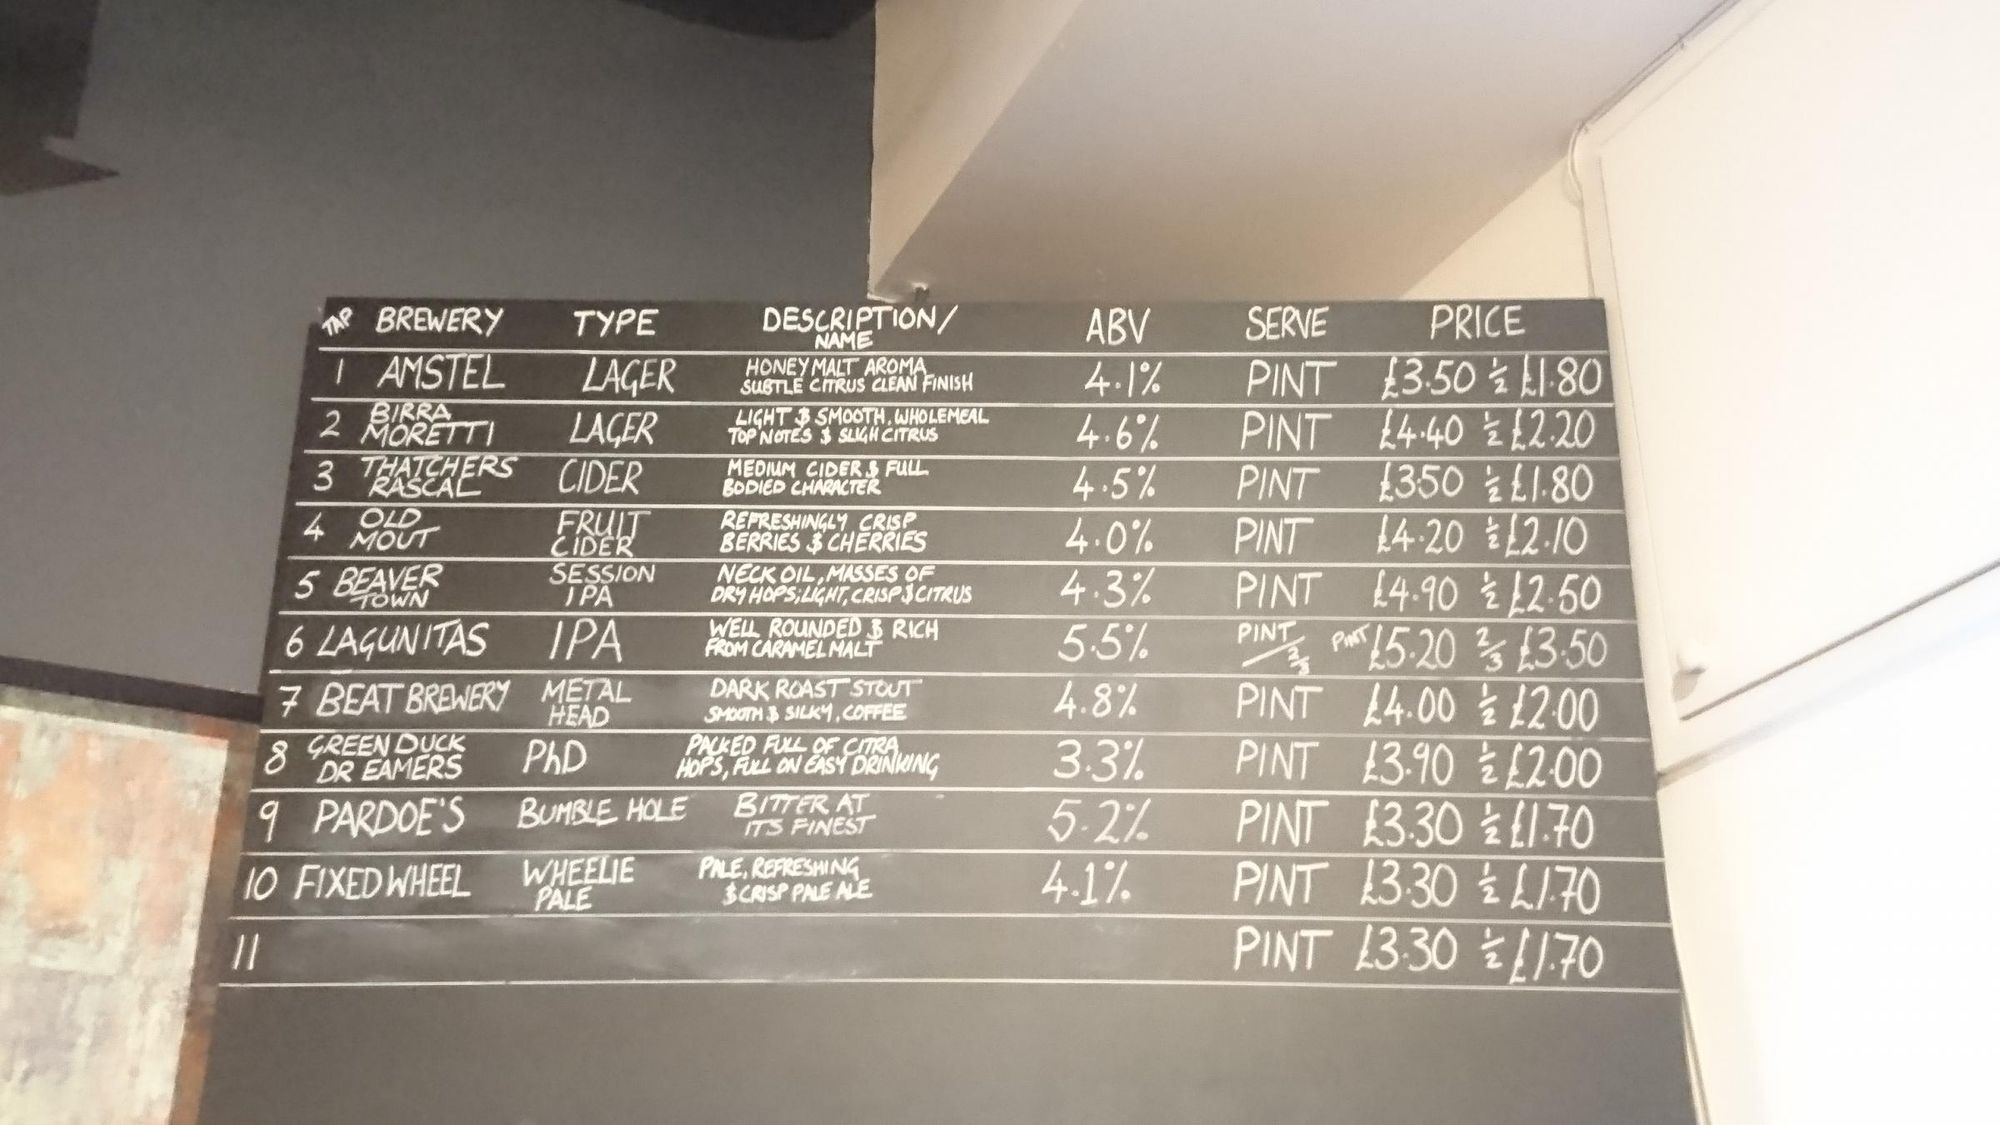 TAP BREWERY TYPE DESCRIPTION/ NAME ABV SERVE PRICE
1 AMSTEL LAGER HONEY MALT AROMA SUBTLE CITRUS CLEAN FINISH 4.1% PINT £3.50 ½ £1.80
2 BIRRA MORETTI LAGER LIGHT & SMOOTH, WHOLEMEAL TOP NOTES & SLIGH CITRUS 4.6% PINT £4.40 ½ £2.20
3 THATCHERS RASCAL CIDER MEDIUM CIDER & FULL BODIED CHARACTER 4.5% PINT £3.50 ½ £1.80
4 OLD MOUT FRUIT CIDER REFRESHINGLY CRISP BERRIES & CHERRIES 4.0% PINT £4.20 ½ £2.10
5 BEAVER TOWN SESSION IPA NECK OIL, MASSES OF DRY HOPS; LIGHT, CRISP & CITRUS 4.3% PINT £4.90 ½ £2.50
6 LAGUNITAS IPA WELL ROUNDED & RICH FROM CARAMEL MALT 5.5% PINT / ⅔ PINT £5.20 ⅔ £3.50
7 BEAT BREWERY METAL HEAD DARK ROAST STOUT SMOOTH & SILKY, COFFEE 4.8% PINT £4.00 ½ £2.00
8 GREEN DUCK DR EAMERS PhD PACKED FULL OF CITRA HOPS, FULL ON EASY DRINKING 3.3% PINT £3.90 ½ £2.00
9 PARDOE'S BUMBLE HOLE BITTER AT ITS FINEST 5.2% PINT £3.30 ½ £1.70
10 FIXED WHEEL WHEELIE PALE PALE, REFRESHING & CRISP PALE ALE 4.1% PINT £3.30 ½ £1.70
11 PINT £3.30 ½ £1.70